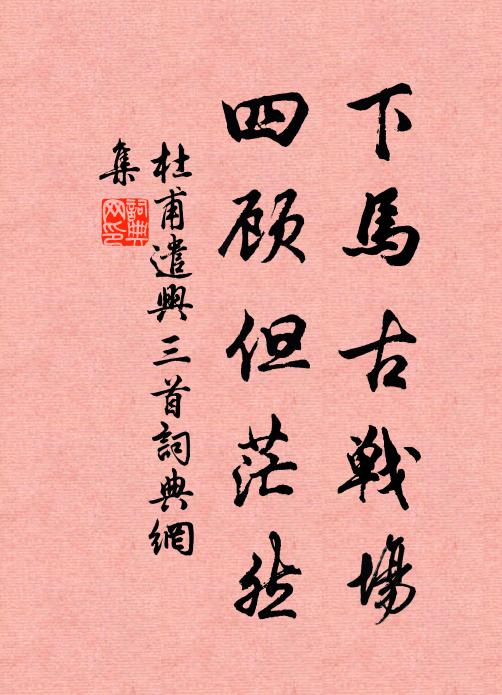 下馬古戰場
四顧但茫然
杜甫遣興三首詞典網
集
詞典
网印